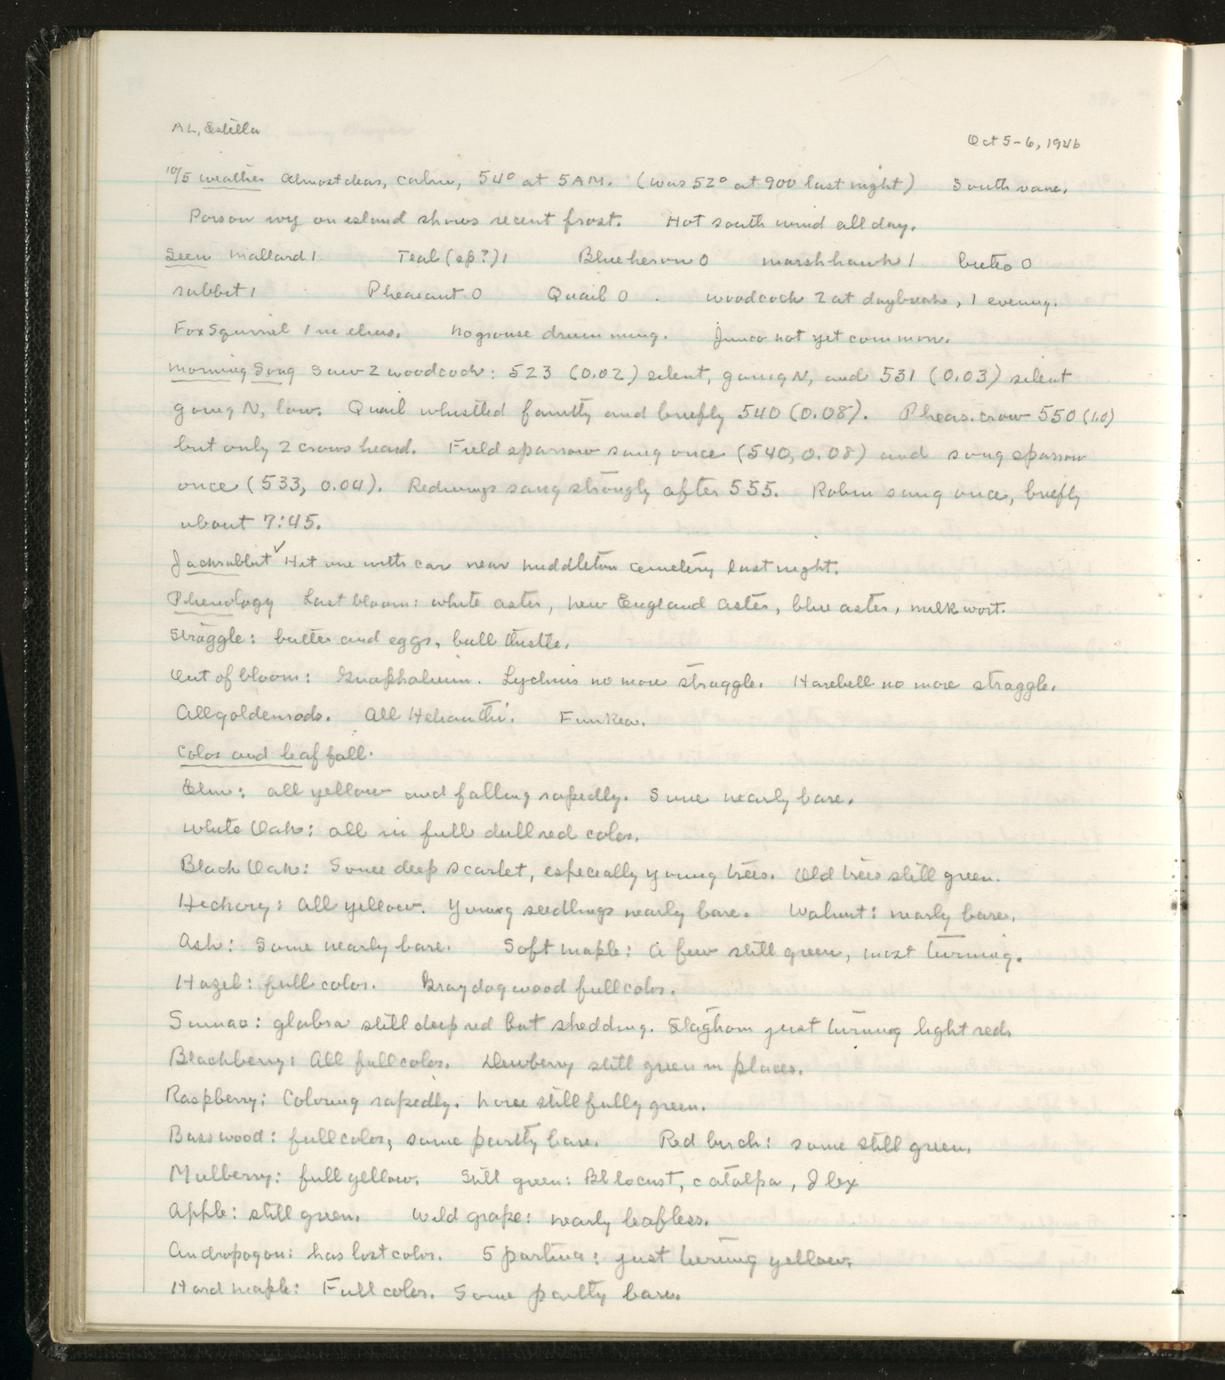 AL, Estella Oct 5-6, 1946
10/5 weather Almost clear, calm, 54° at 5AM. (was 52° at 900 last night) South vane.
Poison ivy on island shows recent frost. Hot south wind all day.
Seen mallard 1 Teal (sp?) 1 Blue heron 0 marsh hawk 1 buteo 0
rabbit 1 Pheasant 0 Quail 0 . woodcock 2 at daybreak, 1 evening.
Fox Squirrel 1 No grouse drumming. Junco not yet common.
Morning Song Saw 2 woodcock: 523 (0.02) silent, going N, and 531 (0.03) silent
going N, low. Quail whistled faintly and briefly 540 (0.08). Pheas. crow 550 (1.0)
but only 2 crows heard. Field sparrow sang once (540, 0.08) and song sparrow
once (533, 0.04). Redwings sang strongly after 555. Robin sang once, briefly
about 7:45.
Jackrabbit ✓ Hit one with car near Middleton cemetery last night.
Phenology Last bloom: white aster, New England Aster, blue aster, milkwort.
Straggle: butter and eggs, bull thistle.
Out of bloom: Gnaphalium. Lychnis no more straggle. Harebell no more straggle.
All goldenrods. All Helianthi. Funkea.
Color and leaf fall.
Elm: all yellow and falling rapidly. Some nearly bare.
White Oak: all in full dull red color.
Black Oak: Some deep scarlet, especially young trees. Old trees still green.
Hickory: All yellow. Young seedlings nearly bare. Walnut: nearly bare.
Ash: Some nearly bare. Soft maple: A few still green, most turning.
Hazel: full color. Gray dogwood full color.
Sumac: glabra still deep red but shedding. Staghorn just turning light red.
Blackberry: All full color. Dewberry still green in places.
Raspberry: Coloring rapidly. None still fully green.
Basswood: full color, some partly bare. Red birch: some still green.
Mulberry: full yellow. Still green: Bl locust, catalpa, Ilex
Apple: still green. Wild grape: nearly leafless.
Andropogon: has lost color. Spartina: just turning yellow.
Hard maple: Full color. Some partly bare.